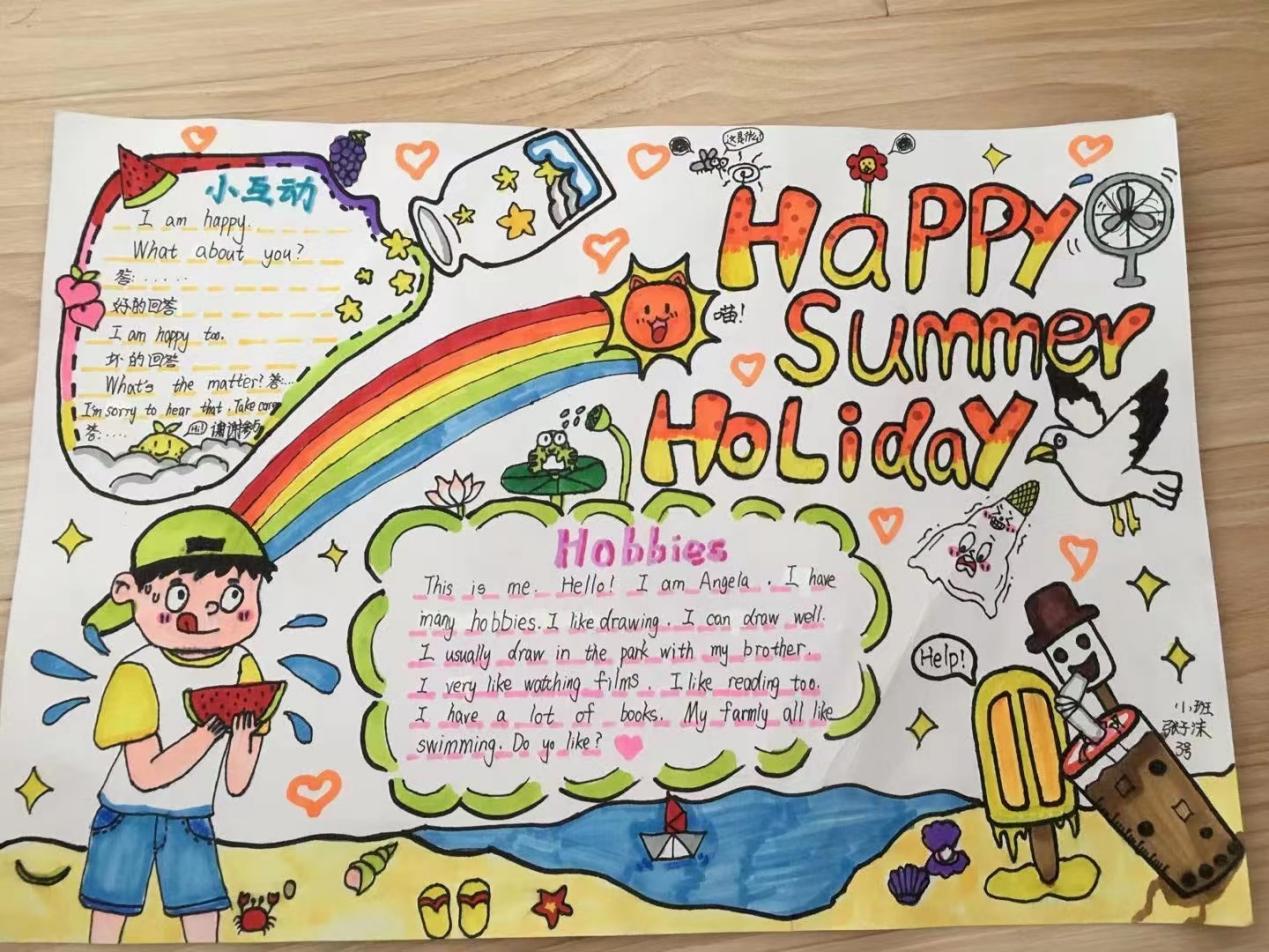 小互动
I am happy.
What about you?
答:.....
好的回答
I am happy too.
坏的回答
What's the matter?答:...
I'm sorry to hear that. Take care
答:....
Hi!
谢谢参与
这是什么!
Happy
Summer
Holiday
喵!
Hobbies
This is me. Hello! I am Angela. I have
many hobbies. I like drawing. I can draw well.
I usually draw in the park with my brother.
I very like watching films. I like reading too.
I have a lot of books. My farmly all like
swimming. Do yo like?
Help!
小班
张子沫